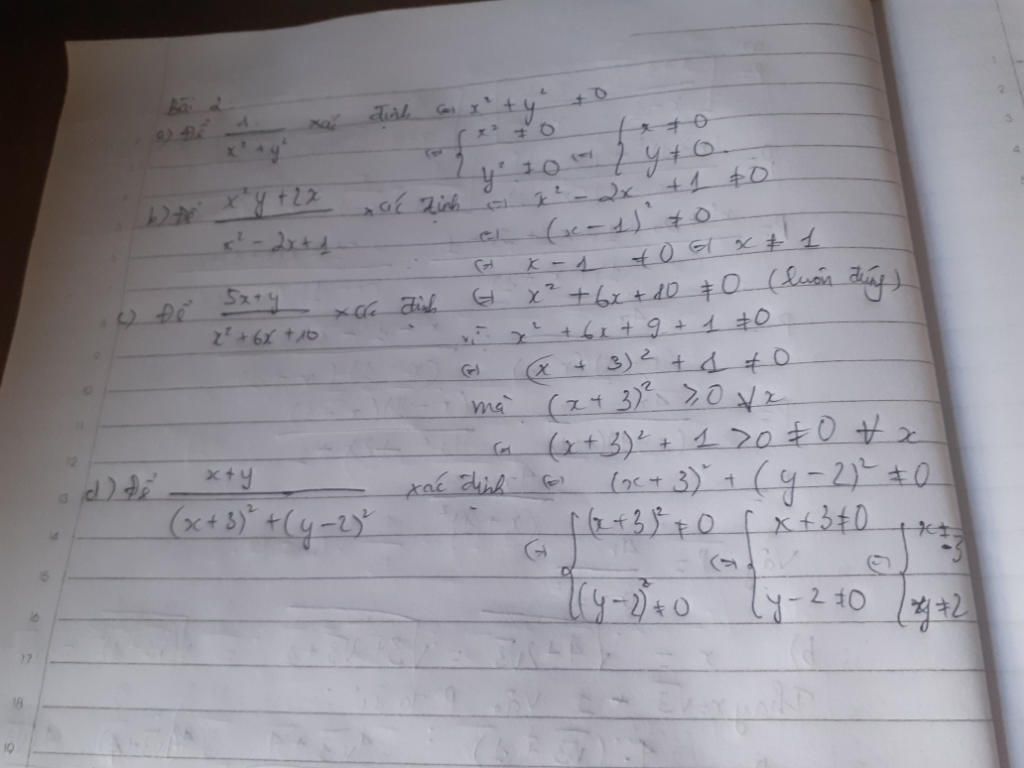 Bài 2
a) Để 1/(x² + y²) xác định ⇔ x² + y² ≠ 0
⇔ { x² ≠ 0 ; y² ≠ 0 ⇔ { x ≠ 0 ; y ≠ 0.
b) Để (x²y + 2x)/(x² - 2x + 1) xác định ⇔ x² - 2x + 1 ≠ 0
⇔ (x - 1)² ≠ 0
⇔ x - 1 ≠ 0 ⇔ x ≠ 1
c) Để (5x + y)/(x² + 6x + 10) xác định ⇔ x² + 6x + 10 ≠ 0 (luôn đúng)
vì x² + 6x + 9 + 1 ≠ 0
⇔ (x + 3)² + 1 ≠ 0
mà (x + 3)² ≥ 0 ∀ x
⇔ (x + 3)² + 1 > 0 ≠ 0 ∀ x
d) Để (x + y)/((x + 3)² + (y - 2)²) xác định ⇔ (x + 3)² + (y - 2)² ≠ 0
⇔ { (x + 3)² ≠ 0 ; (y - 2)² ≠ 0 ⇔ { x + 3 ≠ 0 ; y - 2 ≠ 0 ⇔ { x ≠ -3 ; y ≠ 2